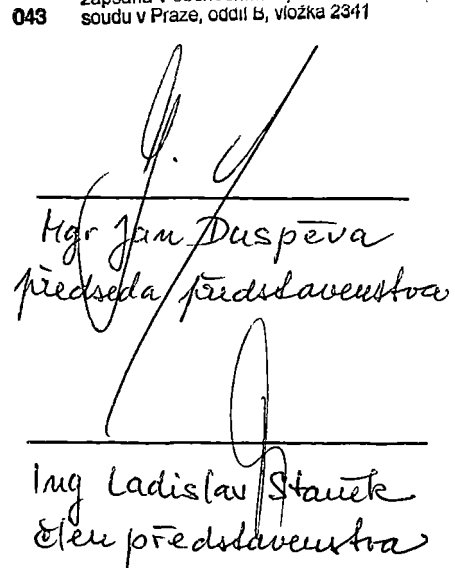 043 soudu v Praze, oddíl B, vložka 2341
Mgr Jan Duspěva
předseda představenstva
Ing Ladislav Staněk
člen představenstva